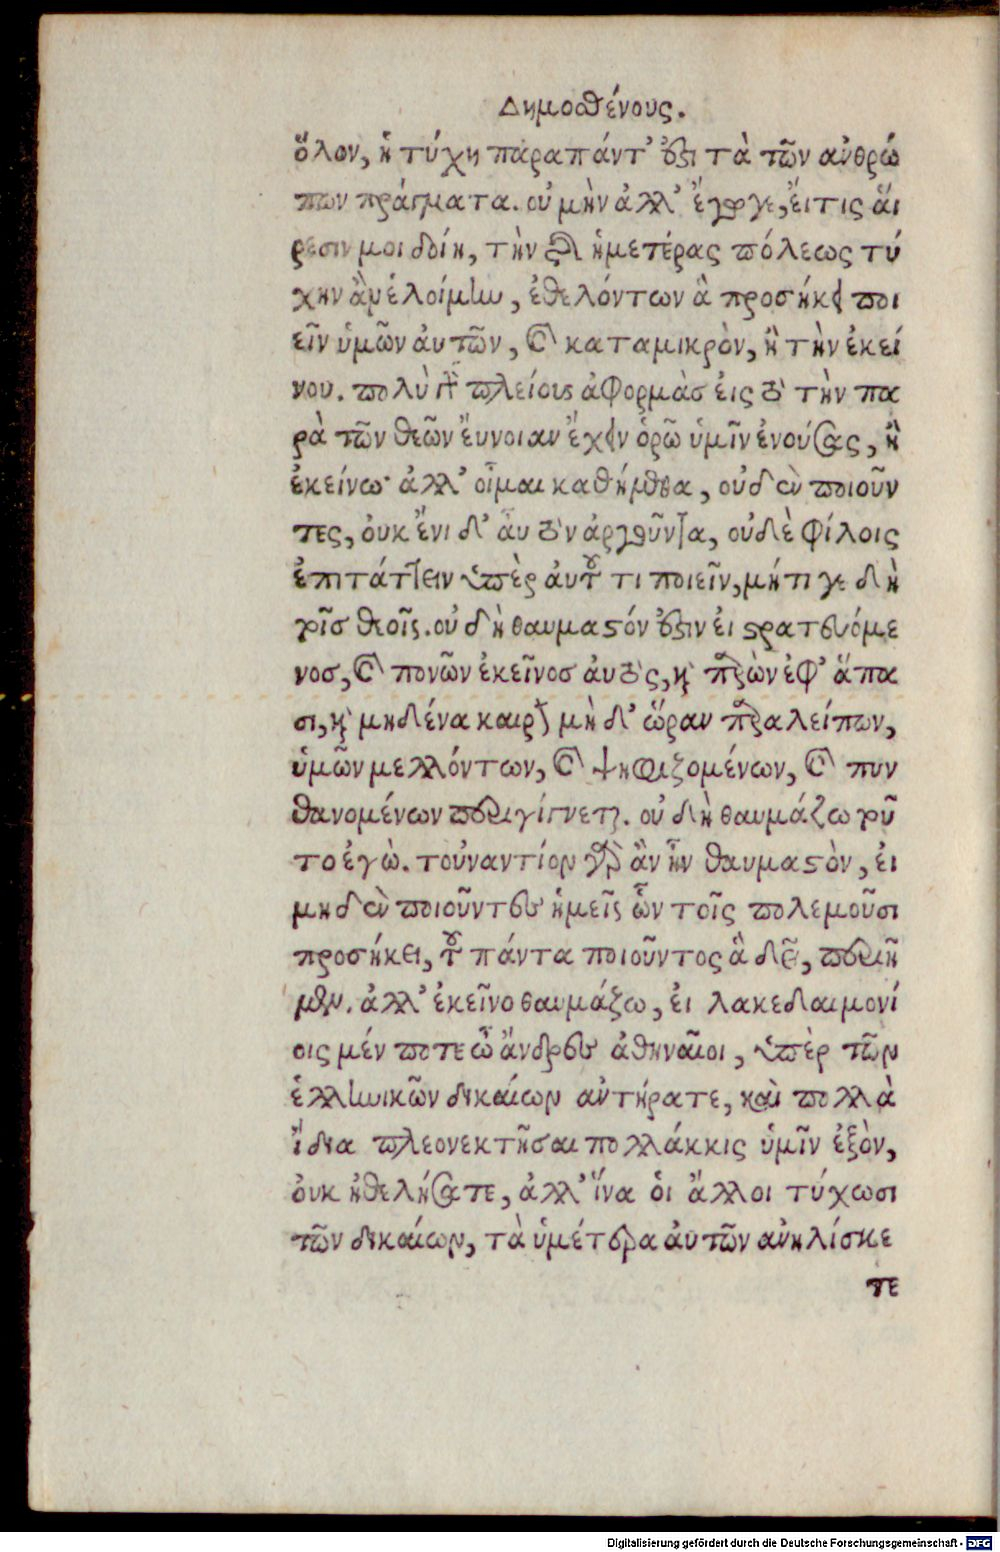 Δημοσθένους.
ὅλον, ἡ τύχη παραπάντ' ἐστὶ τὰ τῶν ἀνθρώ
πων πράγματα. οὐ μὴν ἀλλ' ἔγωγε, εἴ τις αἵ
ρεσιν μοι δοίη, τὴν τῆς ἡμετέρας πόλεως τύ
χην ἂν ἑλοίμην, ἐθελόντων ἃ προσήκει ποι
εῖν ὑμῶν ἀυτῶν, καὶ καταμικρὸν, ἢ τὴν ἐκεί
νου. πολὺ γὰρ πλείους ἀφορμὰς εἰς τὸ τὴν πα
ρὰ τῶν θεῶν ἔυνοιαν ἔχειν ὁρῶ ὑμῖν ἐνούσας, ἢ
ἐκείνω· ἀλλ' οἶμαι καθήμεθα, οὐδὲν ποιοῦν
τες, ὀυκ ἔνι δ' ἀυτὸν ἀργοῦντα, οὐδὲ φίλοις
ἐπιτάττειν ὑπὲρ ἀυτοῦ τι ποιεῖν, μήτι γε δὴ
τοῖς θεοῖς. οὐ δὴ θαυμαστόν ἐστιν εἰ στρατευόμε
νος, καὶ πονῶν ἐκεῖνος ἀυτὸς, καὶ παρὼν ἐφ' ἅπα
σι, καὶ μηδένα καιρὸν μὴ δ' ὥραν παραλείπων,
ὑμῶν μελλόντων, καὶ ψηφιζομένων, καὶ πυν
θανομένων περιγίγνεται. οὐ δὴ θαυμάζω τοῦ
το ἐγὼ. τοὐναντίον γὰρ ἂν ἦν θαυμαστὸν, εἰ
μηδὲν ποιοῦντες ἡμεῖς ὧν τοῖς πολεμοῦσι
προσήκει, τοῦ πάντα ποιοῦντος ἃ δεῖ, περιῆ
μεν. ἀλλ' ἐκεῖνο θαυμάζω, εἰ λακεδαιμονί
οις μέν ποτε ὦ ἄνδρες ἀθηναῖοι, ὑπὲρ τῶν
ἑλληνικῶν δικαίων ἀντήρατε, καὶ πολλὰ
ἴδια πλεονεκτῆσαι πολλάκκις ὑμῖν ἐξὸν,
ὀυκ ἠθελήσατε, ἀλλ' ἵνα οἱ ἄλλοι τύχωσι
τῶν δικαίων, τὰ ὑμέτερα ἀυτῶν ἀνηλίσκε
τε
Digitalisierung gefördert durch die Deutsche Forschungsgemeinschaft - DFG